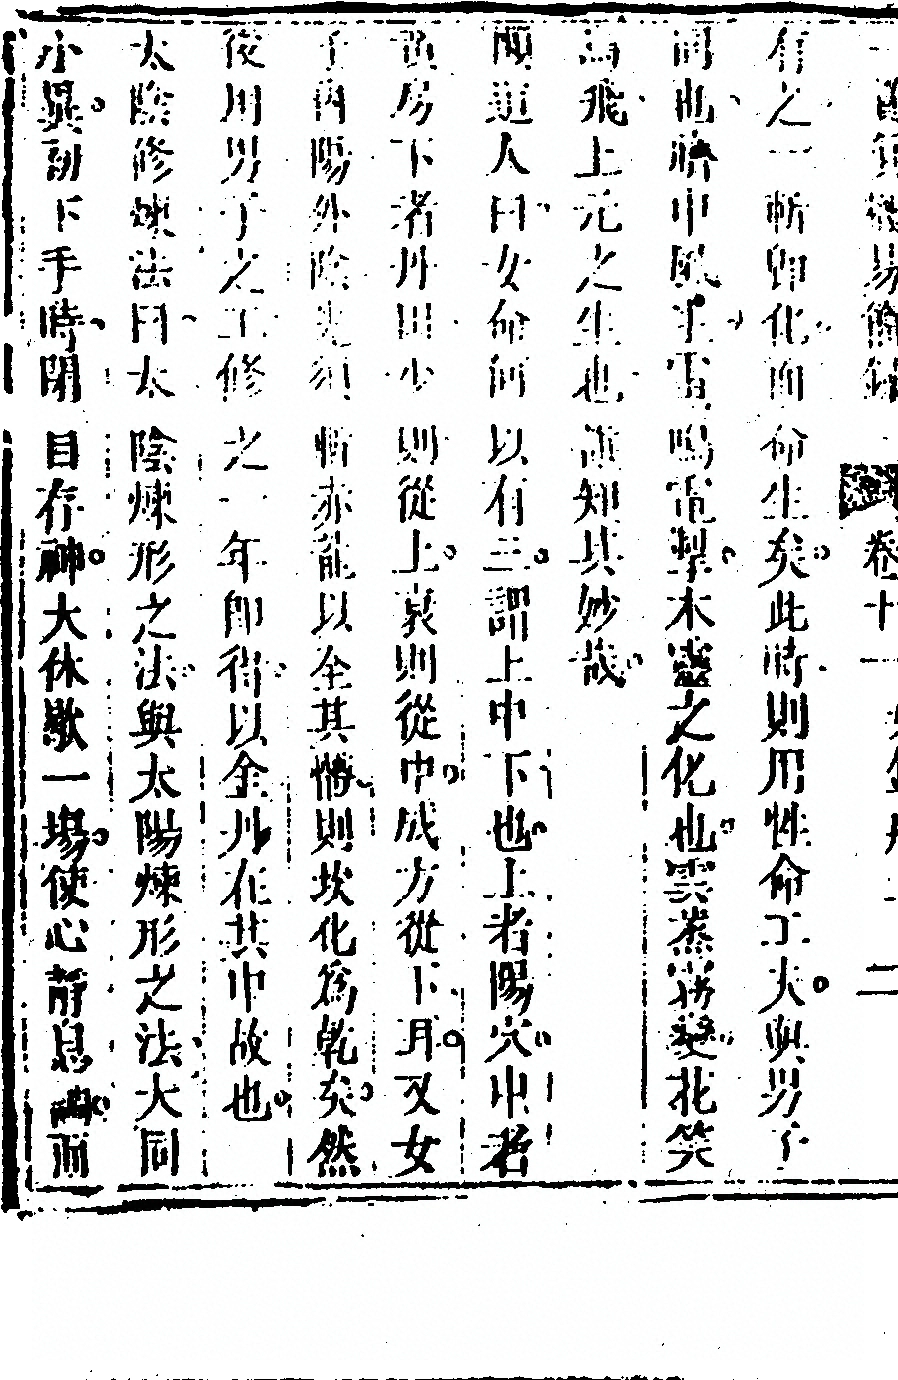 卷十一 二
有之一斬即化而命生矣此時則用性命工夫與男子
同也蔣中風手雷鳴電掣木靈之化也雲蒸霧變北笑
馬飛上元之生也誰知其妙哉
頤道人曰女命何以有三謂上中下也上者陽穴中者
黃房下者丹田少則從上衰則從中成方從下耳又女
子內陽外陰先須斬赤龍以全其體則坎化爲乾矣然
後用男子之工修之一年即得以金丹在其中故也
太陰修煉法曰太陰煉形之法與太陽煉形之法大同
小異初下手時閉目存神大休歇一場使心靜息調而